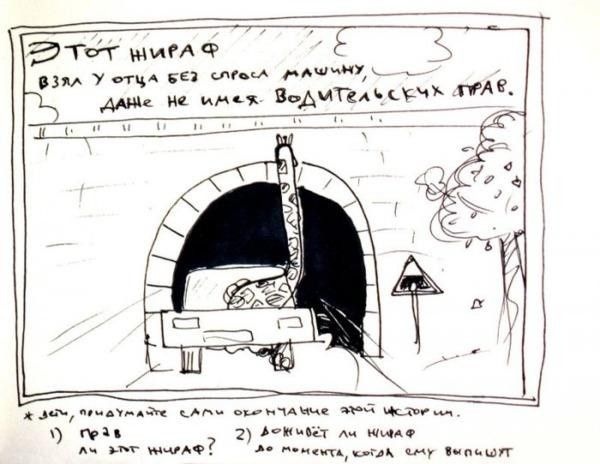 Этот жираф
взял у отца без спроса машину,
даже не имея водительских прав.
* Дети, придумайте сами окончание этой истории.
1) Прав
ли этот жираф?
2) Доживёт ли жираф
до момента, когда ему выпишут